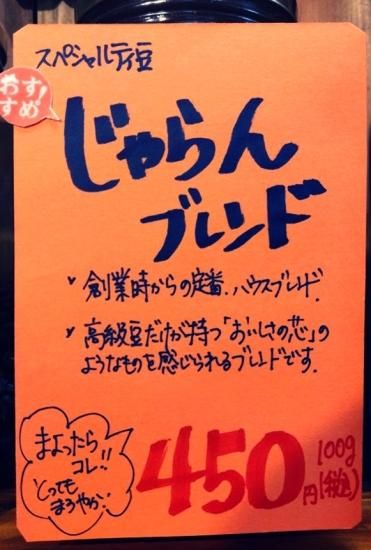 スペシャルティ豆
おす!
すめ
じゃらん
ブレンド
創業時からの定番、ハウスブレンド.
高級豆だけが持つ「おいしさの芯」の
ようなものを感じられるブレンドです.
まよったら
コレ!!
とっても
まろやか!
450円
100g
(税込)